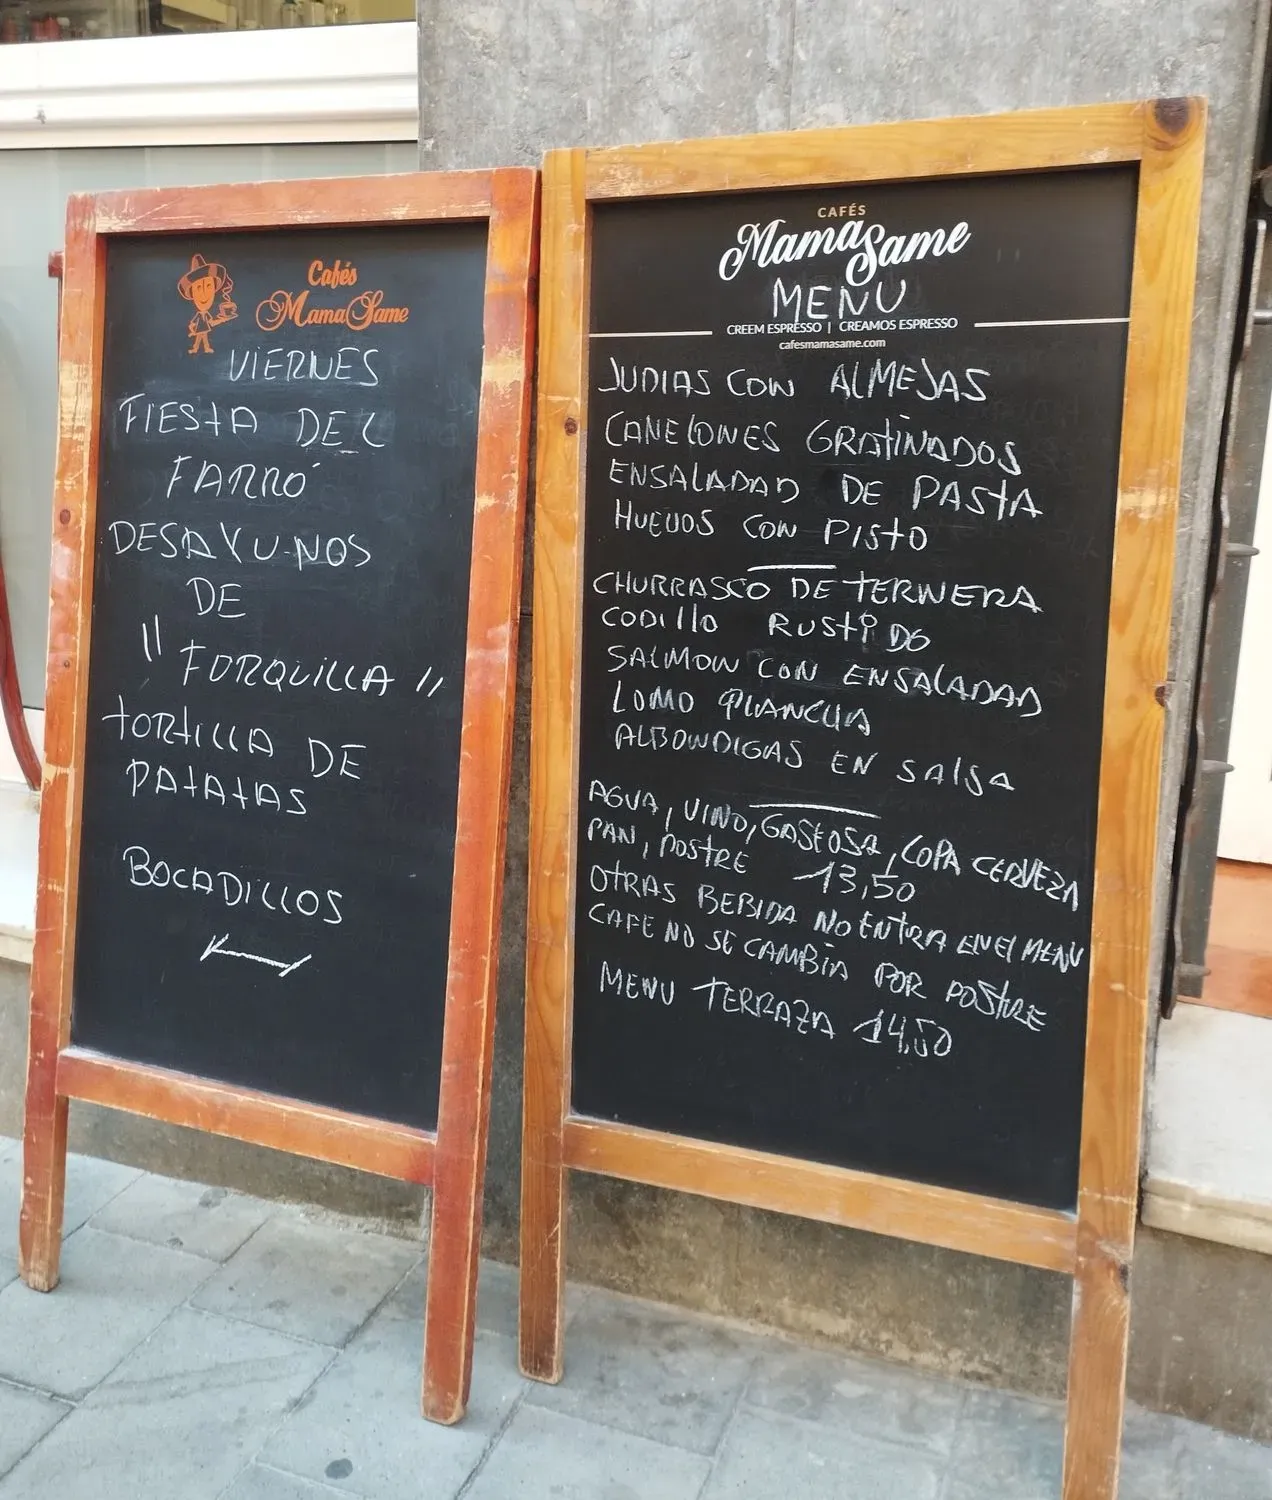 Cafés
MamaSame
VIERNES
FIESTA DEL
FARRÓ
DESAYUNOS
DE
"FORQUILLA"
TORTILLA DE
PATATAS
BOCADILLOS
CAFÉS
MamaSame
MENU
CREEM ESPRESSO | CREAMOS ESPRESSO
cafesmamasame.com
JUDIAS CON ALMEJAS
CANELONES GRATINADOS
ENSALADAD DE PASTA
HUEVOS CON PISTO
CHURRASCO DE TERNERA
CODILLO RUSTIDO
SALMON CON ENSALADAD
LOMO PLANCHA
ALBONDIGAS EN SALSA
AGUA, VINO, GASEOSA, COPA CERVEZA
PAN, POSTRE 13,50
OTRAS BEBIDA NO ENTRA EN EL MENU
CAFE NO SE CAMBIA POR POSTRE
MENU TERRAZA 14,50